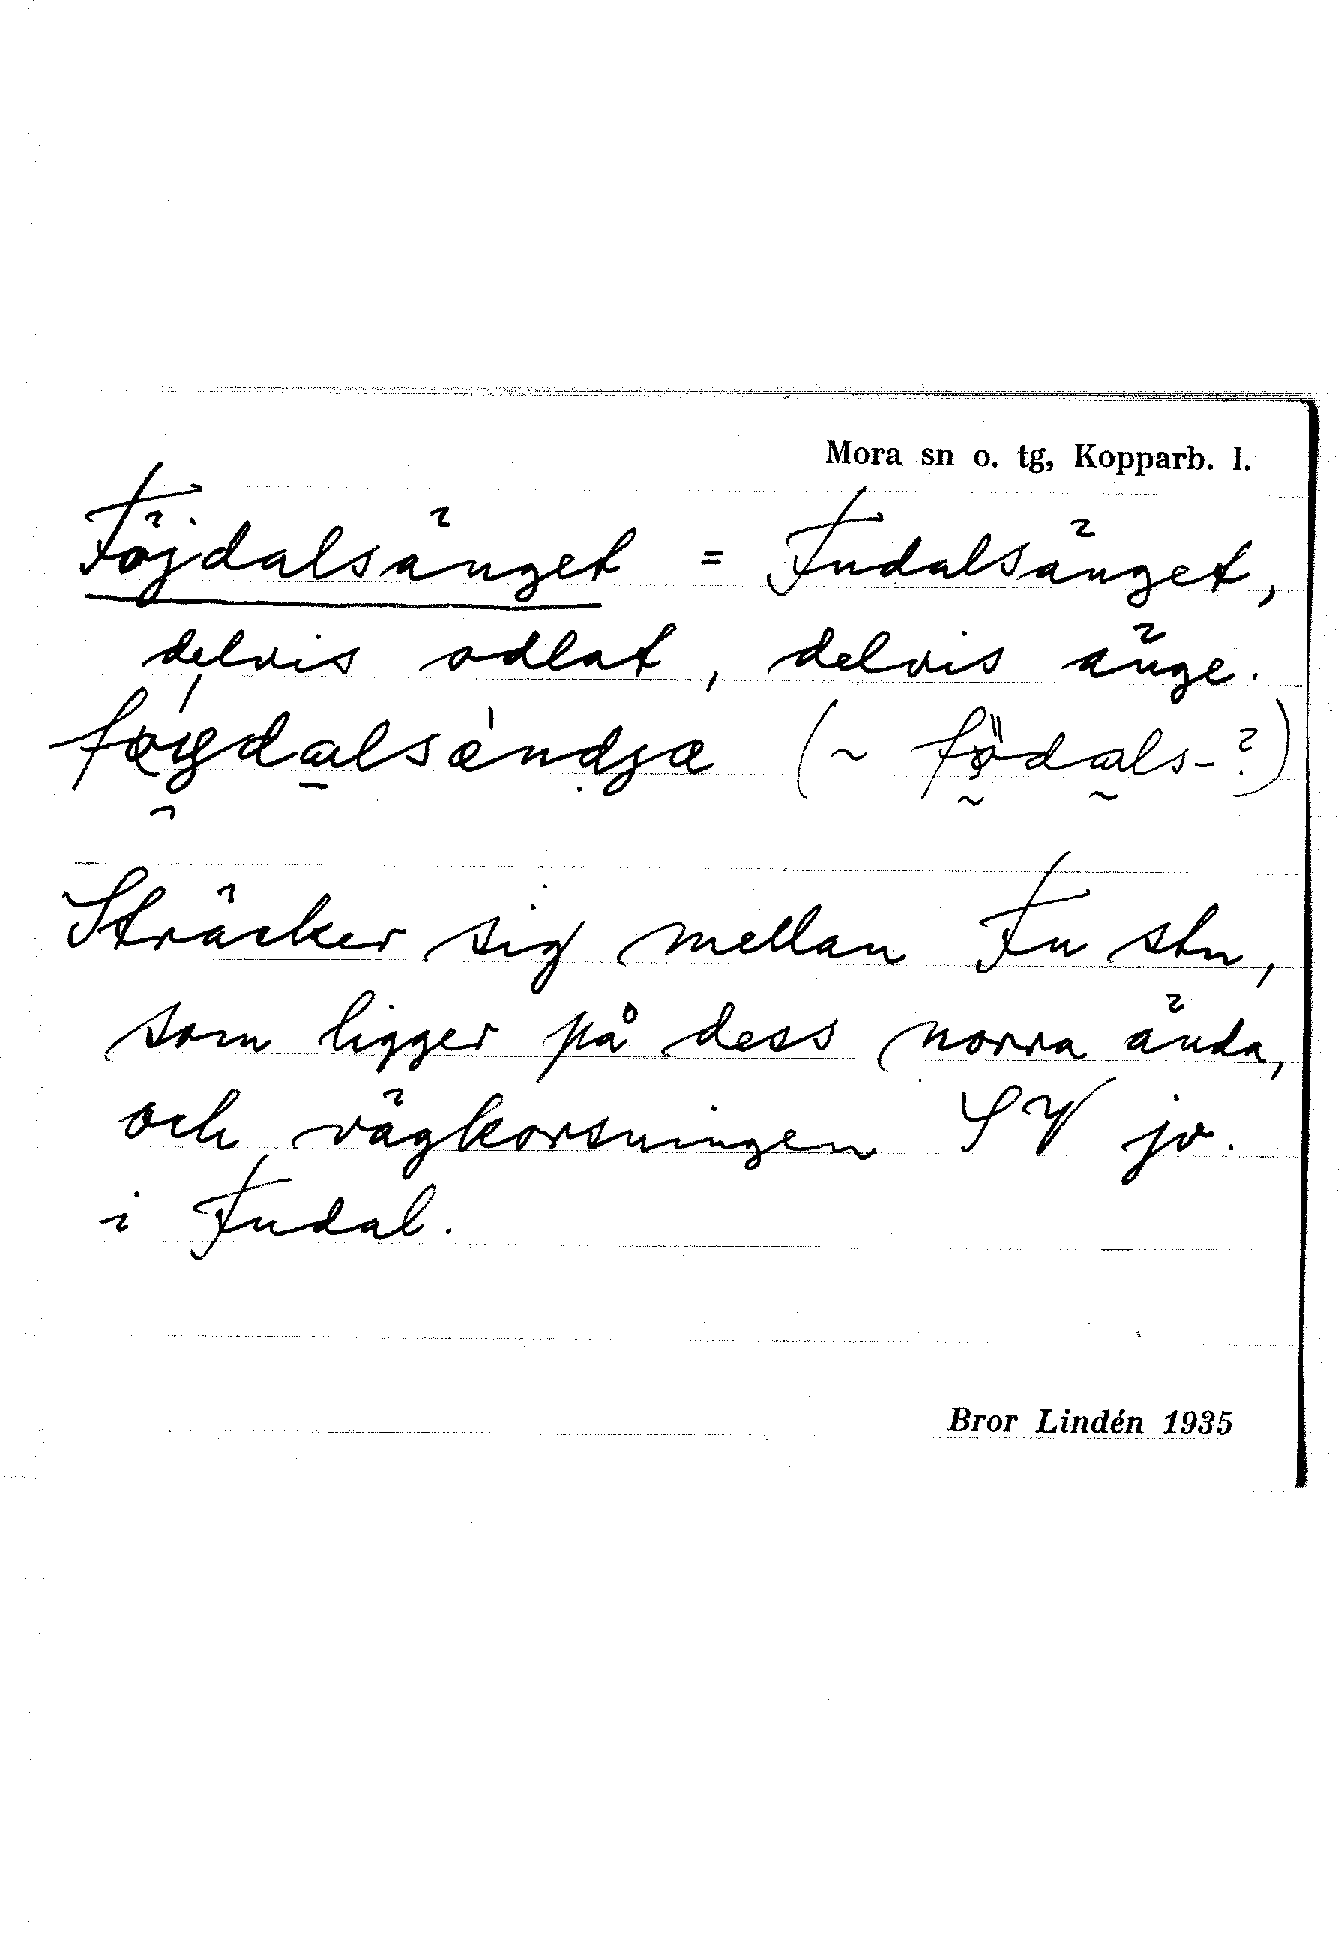 Mora sn o. tg, Kopparb. l.
Föjdalsänget = Fudalsänget,
delvis odlat, delvis änge.
(~ födals-?)
Sträcker sig mellan Fu stn,
som ligger på dess norra ända,
och vägkorsningen SV jv.
i Fudal.
Bror Lindén 1935